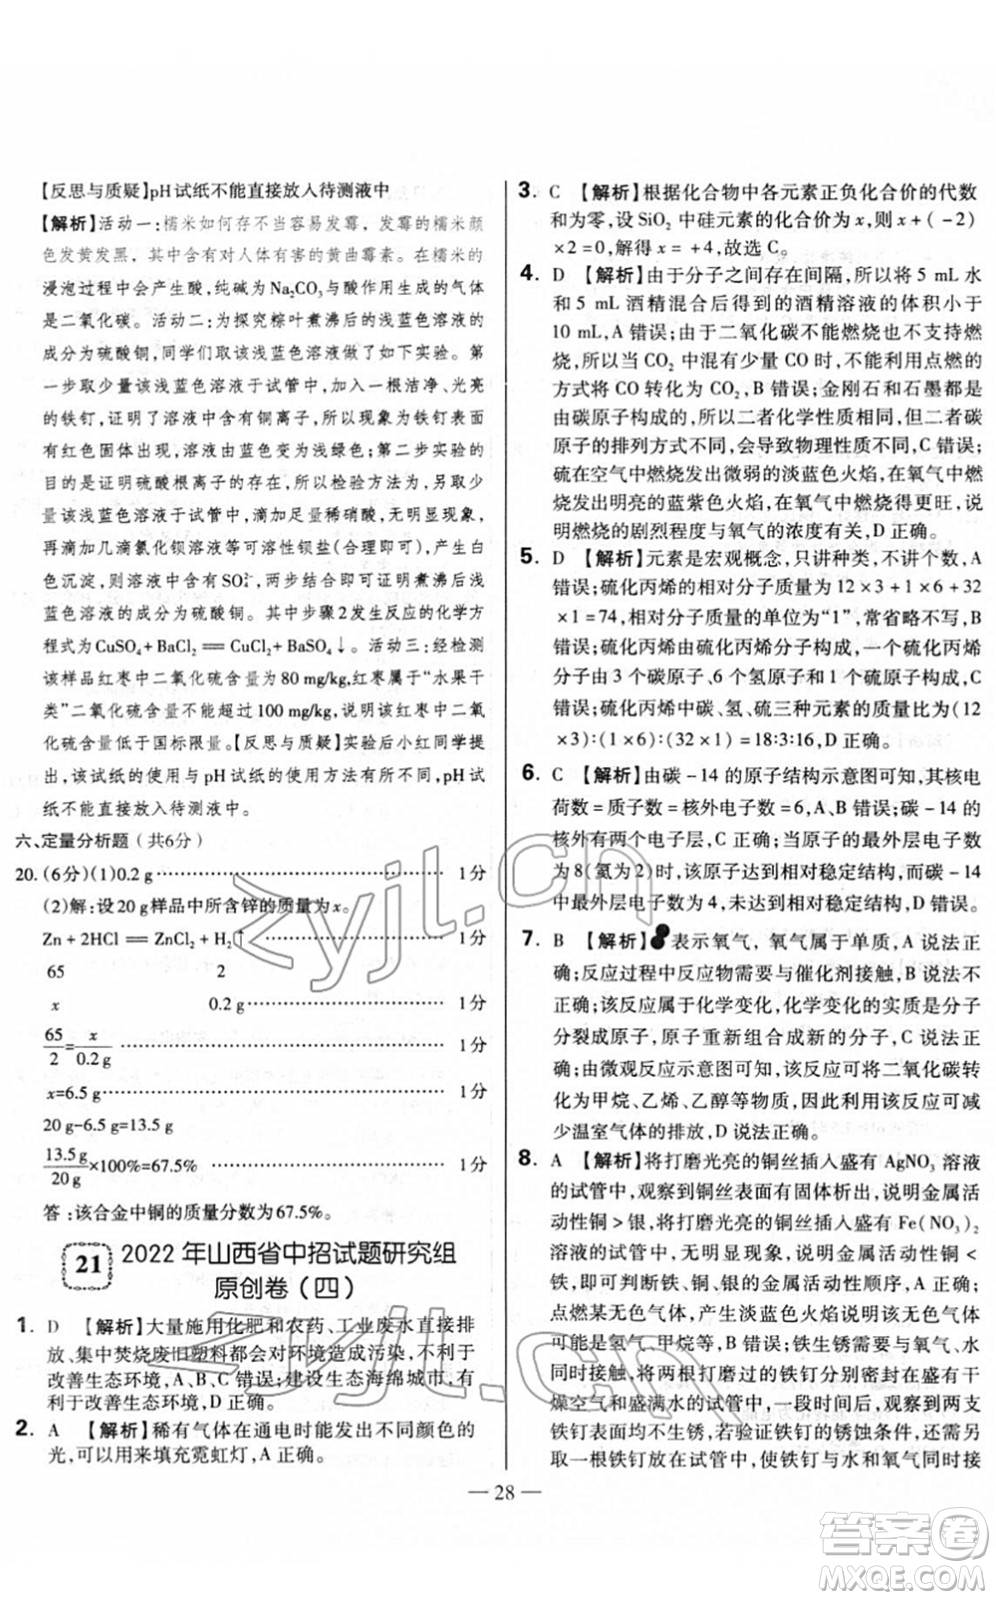 【反思与质疑】pH试纸不能直接放入待测液中
【解析】活动一:糯米如何存不当容易发霉,发霉的糯米颜
色发黄发黑,其中含有对人体有害的黄曲霉素。在糯米的
浸泡过程中会产生酸,纯碱为Na₂CO₃与酸作用生成的气体
是二氧化碳。活动二:为探究粽叶煮沸后的浅蓝色溶液的
成分为硫酸铜,同学们取该浅蓝色溶液做了如下实验。第
一步取少量该浅蓝色溶液于试管中,加入一根洁净、光亮
的铁钉,证明了溶液中含有铜离子,所以现象为铁钉表面
有红色固体析出,溶液由蓝色变为浅绿色;第二步实验的
目的是证明硫酸根离子的存在,所以检验方法为:另取少
量该浅蓝色溶液于试管中,滴加几滴稀硝酸,无明显现象,
再滴加几滴氯化钡溶液等可溶性钡盐(合理即可),产生白
色沉淀,则溶液中含有SO₄²⁻,两步结合即可证明煮沸后浅
蓝色溶液的成分为硫酸铜。其中步骤2发生反应的化学方
程式为CuSO₄+BaCl₂══CuCl₂+BaSO₄↓。活动三:经检测
该样品红枣中二氧化硫含量为80 mg/kg,红枣属于“水果干
类”二氧化硫含量不能超过100 mg/kg,说明该红枣中二氧
化硫含量低于国标限量。【反思与质疑】实验后小红同学提
出,该试纸的使用与pH试纸的使用方法一样,pH试纸不
能直接放入待测液中。
六、定量分析题(共6分)
20.(6分)(1)0.2 g 1分
(2)解:设20 g样品中所含锌的质量为x。
Zn+2HCl══ZnCl₂+H₂↑ 1分
65 2
x 0.2 g 1分
65/2=x/0.2 g 1分
x=6.5 g 1分
20 g-6.5 g=13.5 g
13.5 g/20 g×100%=67.5% 1分
答:该合金中铜的质量分数为67.5%。
21 2022年山西省中招试题研究组
原创卷(四)
1. D 【解析】大量施用化肥和农药、工业废水直接排
放、集中焚烧废旧塑料都会对环境造成污染,不利于
改善生态环境,A、B、C错误;建设生态海绵城市,有
利于改善生态环境,D正确。
2. A 【解析】稀有气体在通电时能发出不同颜色的
光,可以用来填充霓虹灯,A正确。
3. C 【解析】根据化合物中各元素正负化合价的代数
和为零,设SiO₂中硅元素的化合价为x,则x+(-2)
×2=0,解得x=+4,故选C。
4. D 【解析】由于分子之间存在间隔,所以将5 mL水
和5 mL酒精混合后得到的酒精溶液的体积小于
10 mL,A错误;由于二氧化碳不能燃烧也不支持燃
烧,所以当CO₂中混有少量CO时,不能利用点燃的
方式将CO转化为CO₂,B错误;金刚石和石墨都是
由碳原子构成的,所以二者化学性质相似,但二者碳
原子的排列方式不同,会导致物理性质不同,C错误;
硫在空气中燃烧发出微弱的淡蓝色火焰,在氧气中燃
烧发出明亮的蓝紫色火焰,在氧气中燃烧得更旺,说
明燃烧的剧烈程度与氧气的浓度有关,D正确。
5. D 【解析】元素是宏观概念,只讲种类,不讲个数,A
错误;硫化丙烯的相对分子质量为12×3+1×6+32
×1=74,相对分子质量的单位为“1”,常省略不写,B
错误;硫化丙烯由硫化丙烯分子构成,一个硫化丙烯分
子由3个碳原子、6个氢原子和1个硫原子构成,C
错误;硫化丙烯中碳、氢、硫三种元素的质量比为(12
×3):(1×6):(32×1)=18:3:16,D正确。
6. C 【解析】由碳-14的原子结构示意图可知,其核电
荷数=质子数=核外电子数=6,A、B错误;碳-14的
核外有两个电子层,C正确;当原子的最外层电子数
为8(氦为2)时,该原子达到相对稳定结构,而碳-14
中最外层电子数为4,未达到相对稳定结构,D错误。
7. B 【解析】表示氧气,氧气属于单质,A说法正
确;反应过程中反应物需要与催化剂接触,B说法不正
确;该反应属于化学变化,化学变化的实质是分子
分裂成原子,原子重新组合成新的分子,C说法正
确;由微观反应示意图可知,该反应可将二氧化碳转
化为甲烷、乙烯、乙醇等物质,因此利用该反应可减
少温室气体的排放,D说法正确。
8. A 【解析】将打磨光亮的铜丝插入盛有AgNO₃溶液
的试管中,观察到铜丝表面有固体析出,说明金属活
动性铜>银,将打磨光亮的铜丝插入盛有Fe(NO₃)₂
溶液的试管中,没有明显现象,说明金属活动性铜<
铁,即可判断铁、铜、银的金属活动性顺序,A正确;
点燃某无色气体,产生淡蓝色火焰,说明该无色气体
可能是氢气、甲烷等,B错误;铁生锈需要与氧气、水
同时接触,将两根打磨过的铁钉分别密封在盛有干
燥空气和盛满水的试管中,一段时间后,观察到两支
铁钉表面均不生锈,若验证铁钉的锈蚀条件,还需要
另取一根铁钉放在试管中,使铁钉与水和氧气同时接
— 28 —
zyjl.cn
zyjl.cn
答案圈
MXQE.COM